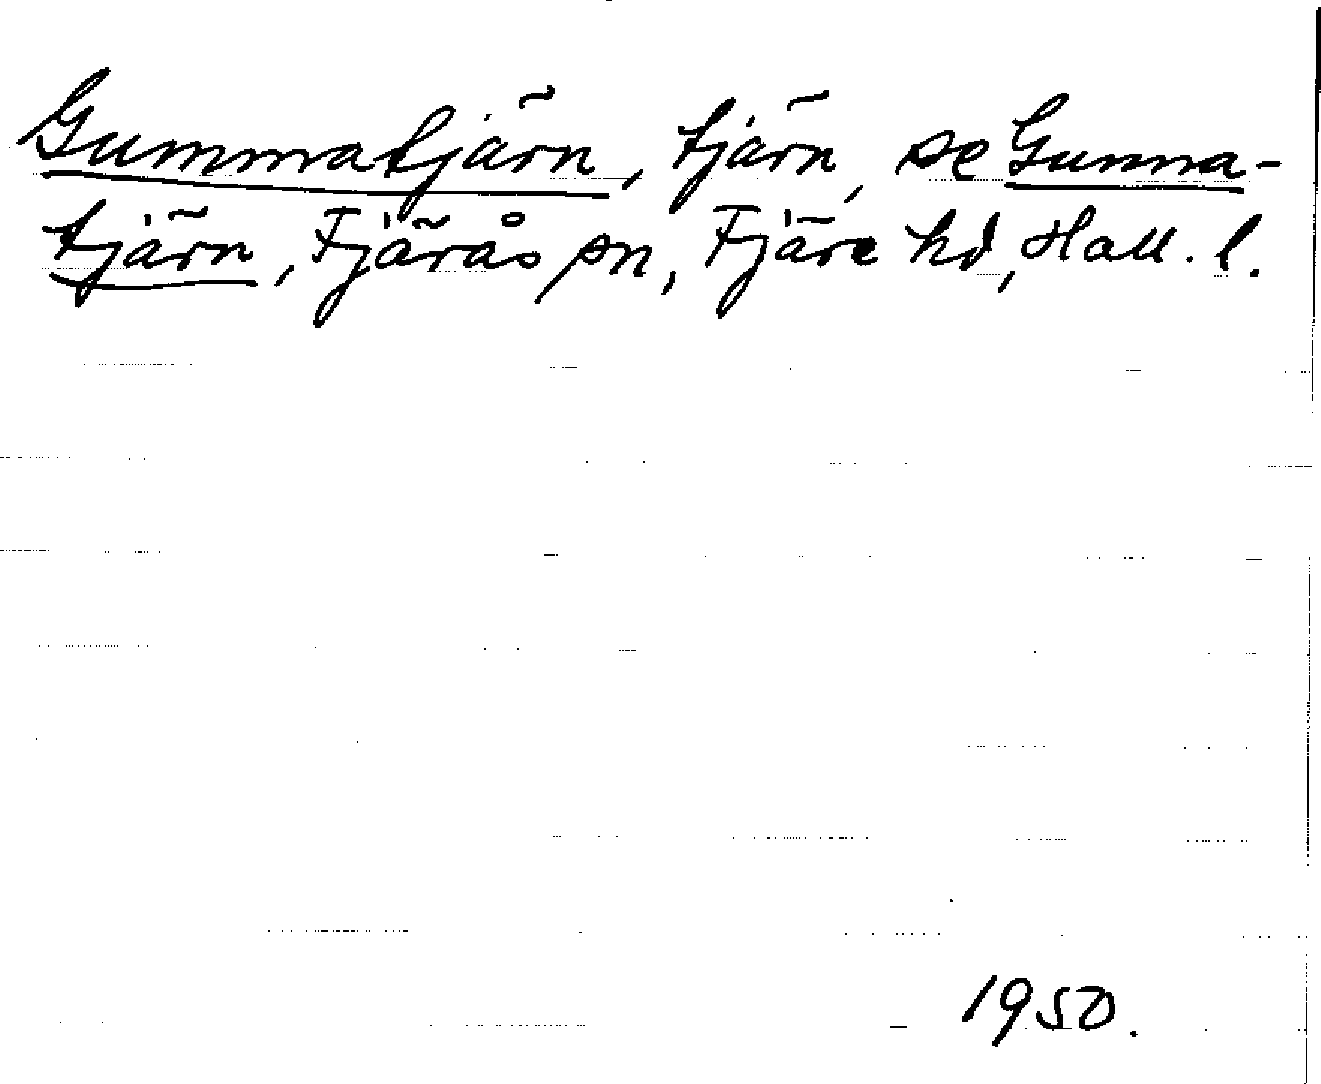 Gummatjärn, tjärn, se Gunna-
tjärn, Fjärås sn, Fjäre hd, Hall. l.
1950.